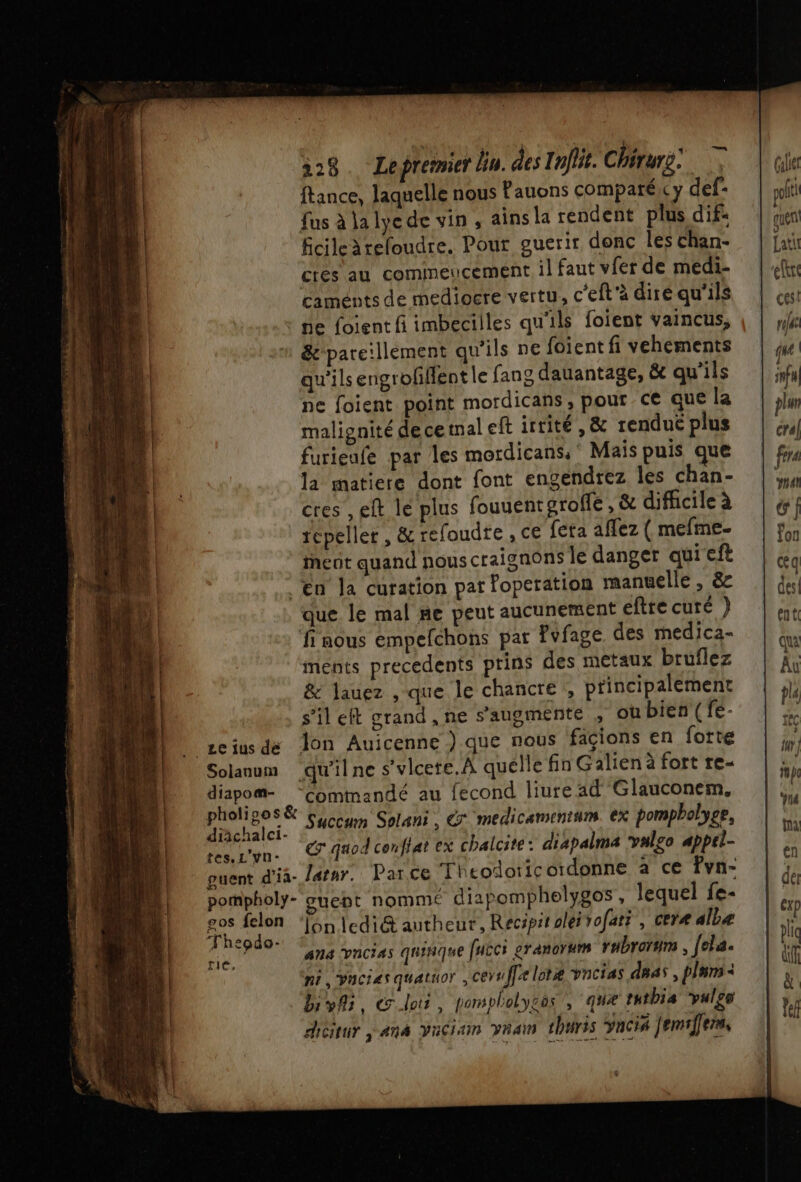 328 Le premier liu. des Inſtit. Chirurg.
ſtance, laquelle nous l'auons comparé cy deſ-
ſus à la lye de vin, ains la rendent plus dif-
ficile à reſoudre. Pour guerir donc les chan-
cres au commencement il faut vſer de medi-
caments de mediocre vertu, c'eſt à dire qu'ils
ne ſoient ſi imbecilles qu'ils ſoient vaincus,
& pareillement qu'ils ne ſoient ſi vehements
qu'ils engroſiſſent le ſang dauantage, & qu'ils
ne ſoient point mordicans, pour ce que la
malignité de ce mal eſt irrité, & renduë plus
furieuſe par les mordicans. Mais puis que
la matiere dont ſont engendrez les chan-
cres, eſt le plus ſouuent groſſe, & difficile à
repeller, & reſoudre, ce ſera aſſez ( meſme-
ment quand nous craignons le danger qui eſt
en la curation par l'operation manuelle, &
que le mal ne peut aucunement eſtre curé )
ſi nous empeſchons par l'vſage des medica-
ments precedents prins des metaux bruſlez
& lauez, que le chancre, principalement
s'il eſt grand, ne s'augmente, ou bien ( ſe-
lon Auicenne ) que nous façions en ſorte
qu'il ne s'vlcere. A quelle fin Galien à fort re-
commandé au ſecond liure ad Glauconem,
Succum Solani, & medicamentum ex pompholyge,
& quod conflat ex chalcite: diapalma vulgo appel-
latur. Par ce Theodoric ordonne à ce l'vn-
guent nommé diapompholygos, lequel ſe-
lon ledict autheur, Recipit olei roſati, ceræ albæ
ana vncias quinque ſucci granorum rubrorum, ſola-
ni, vncias quatuor, ceruſſæ lotæ vncias duas, plum-
bi vſti, & loti, pompholygos, quæ tuthia vulgo
dicitur, ana vnciam vnam thuris vncia ſemiſſem,
Le ius de
Solanum
diapom-
pholigos &
diachalci-
tes, L'vn-
guent d'ia-
pompholy-
gos ſelon
Theodo-
ric.